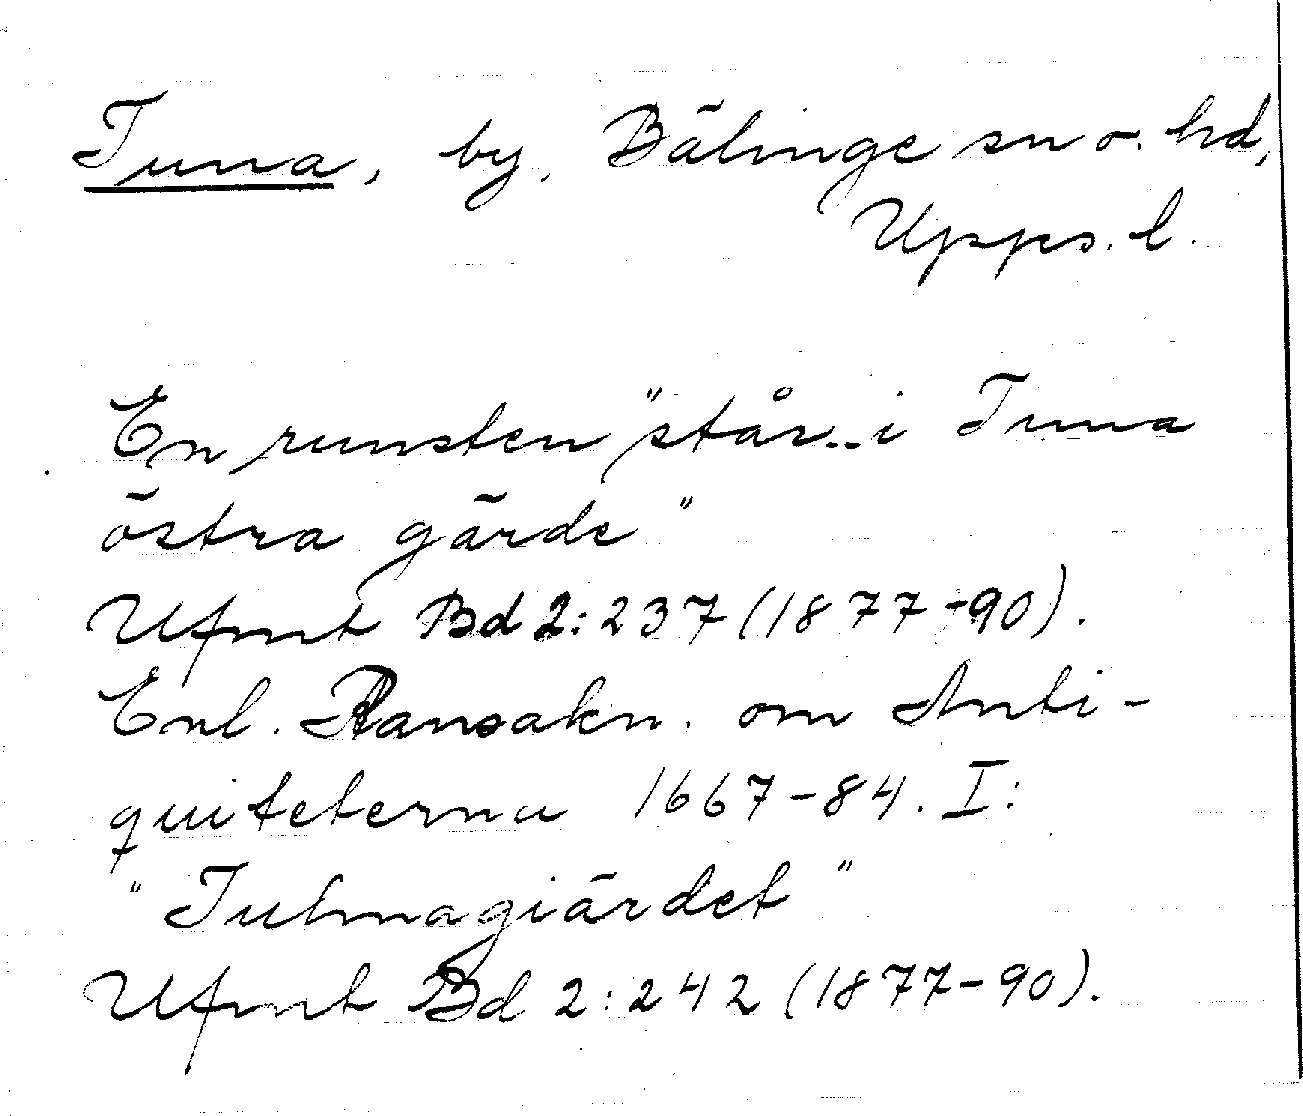 Tuna, by, Bälinge sn o. hd,
Upps. l.
En runsten "står.. i Tuna
östra gärde"
Ufmt Bd 2:237 (1877-90).
Enl. Ransakn. om Anti-
quiteterna 1667-84. I:
"Tuhnagiärdet"
Ufmt Bd 2:242 (1877-90).